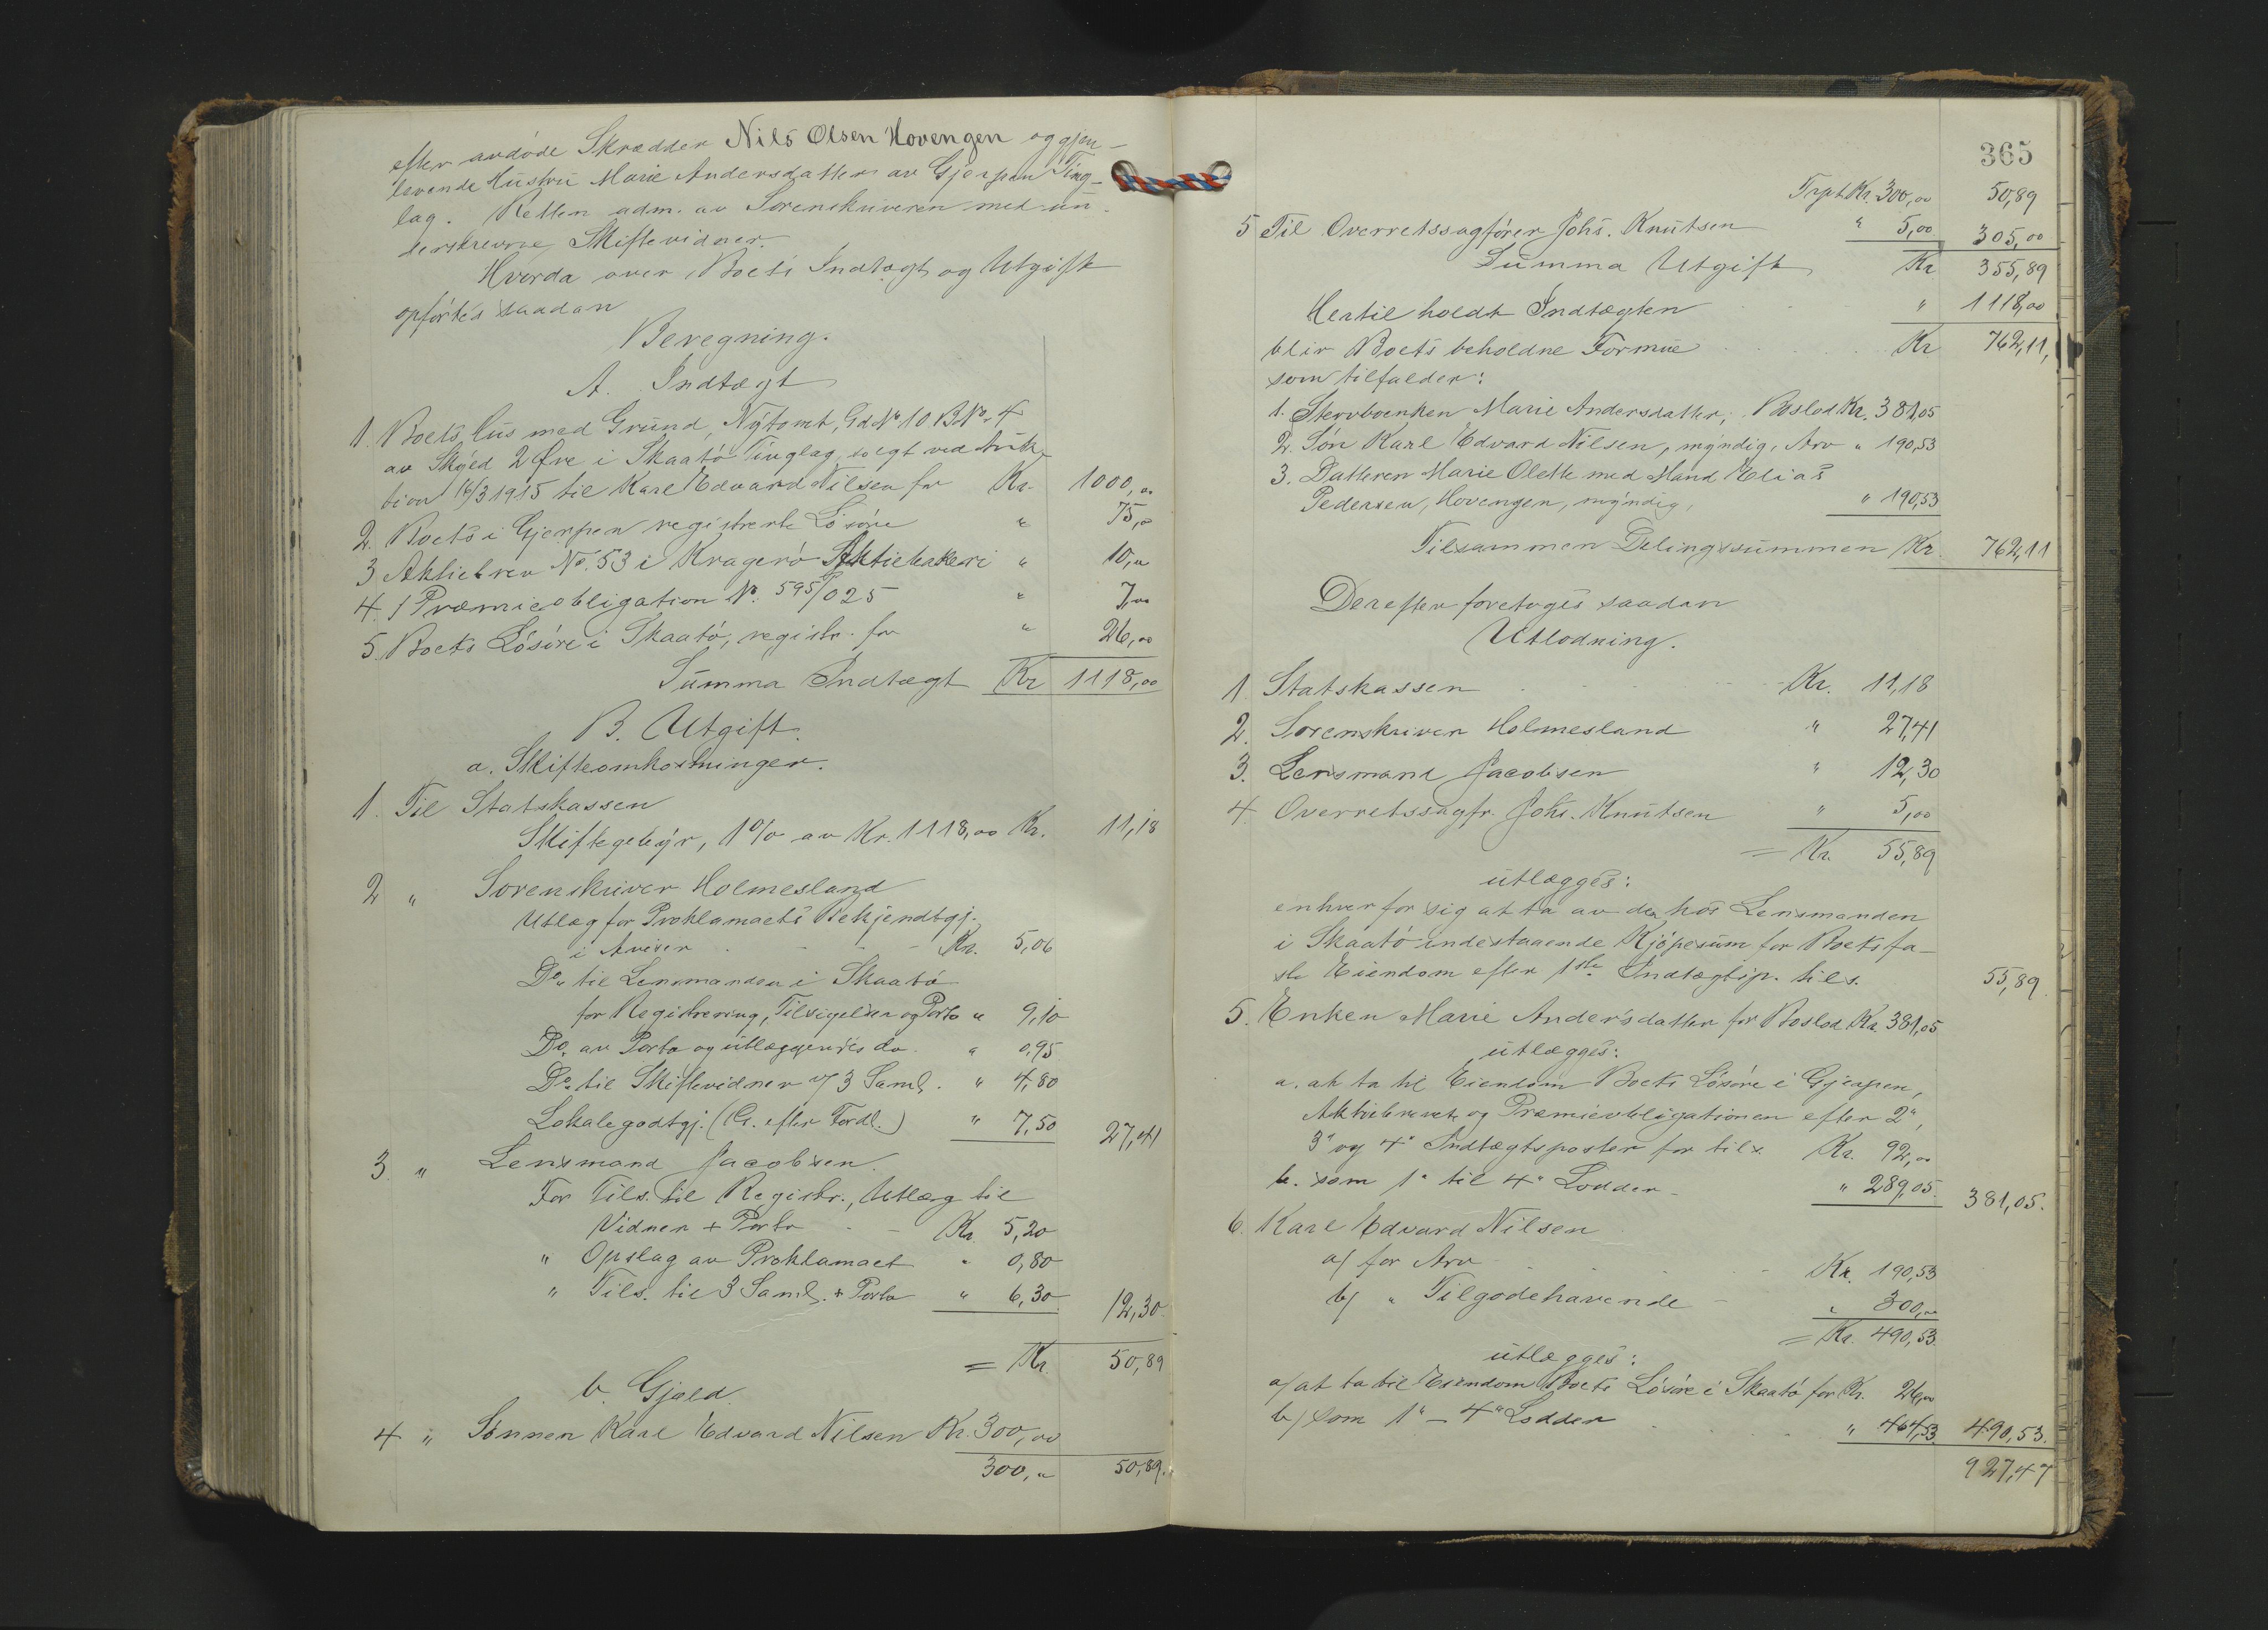 efter avdøde Skrædder Nils Olsen Hovengen og gjen-
levende Hustru Marie Andersdatter av Gjerpen Ting-
lag. Retten adm. av Sorenskriveren med un-
derskrevne Skiftevidner.
Hvorda over Boets Indtægt og Utgift
opførtes saadan
Beregning.
A. Indtægt
1. Boets Hus med Grund, Nytomt, Gd No 10 B No. 4
av Skyld 2 Øre i Skaatø Tinglag, solgt ved Auk-
tion 16/3 1915 til Karl Edvard Nilsen for Kr. 1000,00
2. Boets i Gjerpen registrerte Løsøre " 75,00
3 Aktiebrev No. 53 i Kragerø Aktiebakeri " 10,00
4. 1 Præmieobligation No. 595/025 " 7,00
5. Boets Løsøre i Skaatø, registr. for " 26,00
Summa Indtægt Kr 1118,00
B. Utgift.
a. Skifteomkostninger.
1. Til Statskassen
Skiftegebyr, 1% av Kr. 1118,00 Kr. 11,18
2 " Sorenskriver Holmesland
Utlæg for Proklamaets Bekjendtgj.
i Aviser - - - Kr. 5,06
Do. til Lensmanden i Skaatø
for Registrering, Tilsigelser og Porto " 9,10
Do. av Porto og utlæggendes do. " 0,95
Do. til Skiftevidner v/ 3 Saml. " 4,80
Lokalegodtgj. (G. efter Fordl.) " 7,50 27,41
3 " Lensmand Jacobsen.
For Tils. til Registr., Utlæg til
Vidner + Porto - - Kr. 5,20
" Opslag av Proklamaet " 0,80
" Tils. til 3 Saml. + Porto " 6,30 12,30
= Kr. 50,89
b. Gjæld.
4 " Sønnen Karl Edvard Nilsen Kr. 300,00
300,00 50,89.
365
Trpt Kr. 300,00 50,89
5 Til Overretssagfører Johs. Knutsen " 5,00 305,00
Summa Utgift Kr 355,89
Hertil holdt Indtægten " 1118,00
blir Boets beholdne Formue Kr 762,11,
som tilfalder:
1. Stervboenken Marie Andersdatter, Boslod Kr. 381,05
2. Søn Karl Edvard Nilsen, myndig, Arv " 190,53
3. Datteren Marie Olette med Mand Elias
Pedersen, Hovengen, myndig, " 190,53
Tilsammen Delingssummen Kr. 762,11
Derefter foretoges saadan
Utlodning.
1 Statskassen - - - Kr. 11,18
2. Sorenskriver Holmesland " 27,41
3. Lensmand Jacobsen " 12,30
4 Overretssagfr. Johs. Knutsen " 5,00
= Kr. 55,89
utlægges:
enhver for sig at ta av den hos Lensmanden
i Skaatø indestaaende Kjøpesum for Boets fa-
ste Eiendom efter 1ste Indtægtsp. tils. 55,89.
5. Enken Marie Andersdatter for Boslod Kr. 381,05
utlægges:
a. at ta til Eiendom Boets Løsøre i Gjerpen,
Aktiebrevet og Præmieobligationen efter 2",
3" og 4" Indtægtsposter for tils. Kr. 92,00
b. som 1" til 4" Lodder - " 289,05. 381,05.
6. Karl Edvard Nilsen
a/ for Arv - - - Kr. 190,53
b/ " Tilgodehavende - " 300,00
= Kr. 490,53.
utlægges:
a/ at ta til Eiendom Boets Løsøre i Skaatø for Kr. 26,00
b/ som 1" - 4" Lodder " 464,53 490,53.
927,47